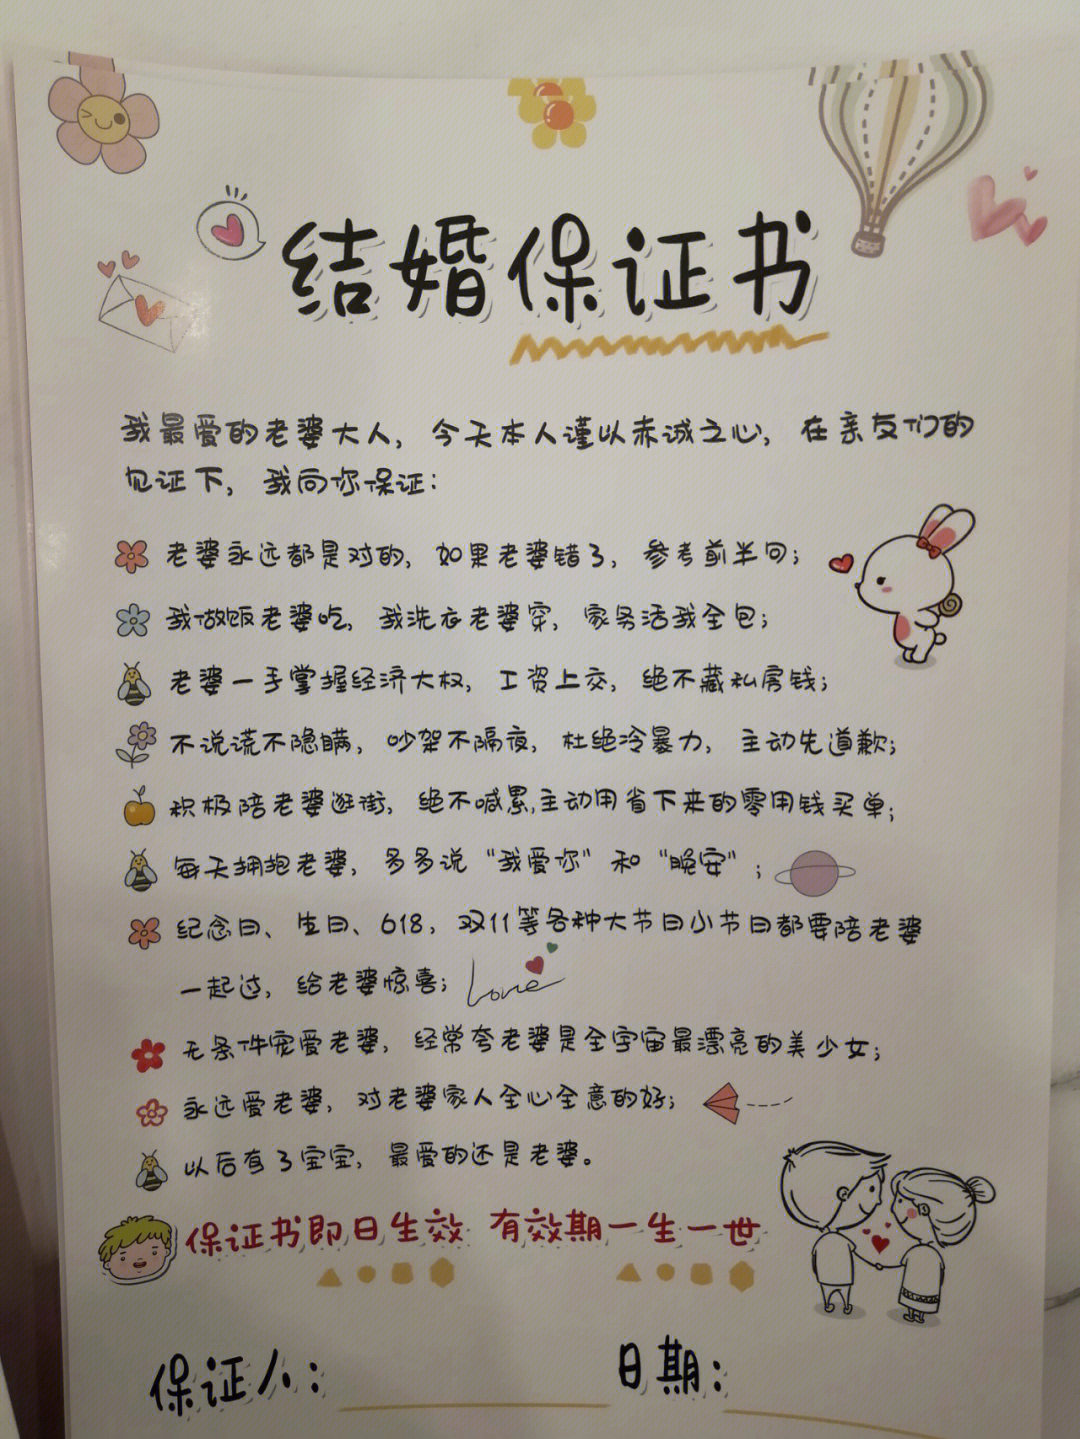 结婚保证书
我最爱的老婆大人，今天本人谨以赤诚之心，在亲友们的
见证下，我向你保证：
老婆永远都是对的，如果老婆错了，参考前半句；
我做饭老婆吃，我洗衣老婆穿，家务活我全包；
老婆一手掌握经济大权，工资上交，绝不藏私房钱；
不说谎不隐瞒，吵架不隔夜，杜绝冷暴力，主动先道歉；
积极陪老婆逛街，绝不喊累，主动用省下来的零用钱买单；
每天拥抱老婆，多多说“我爱你”和“晚安”；
纪念日、生日、618，双11等各种大节日小节日都要陪老婆
一起过，给老婆惊喜；
Love
无条件宠爱老婆，经常夸老婆是全宇宙最漂亮的美少女；
永远爱老婆，对老婆家人全心全意的好；
以后有了宝宝，最爱的还是老婆。
保证书即日生效 有效期一生一世
保证人： 日期：